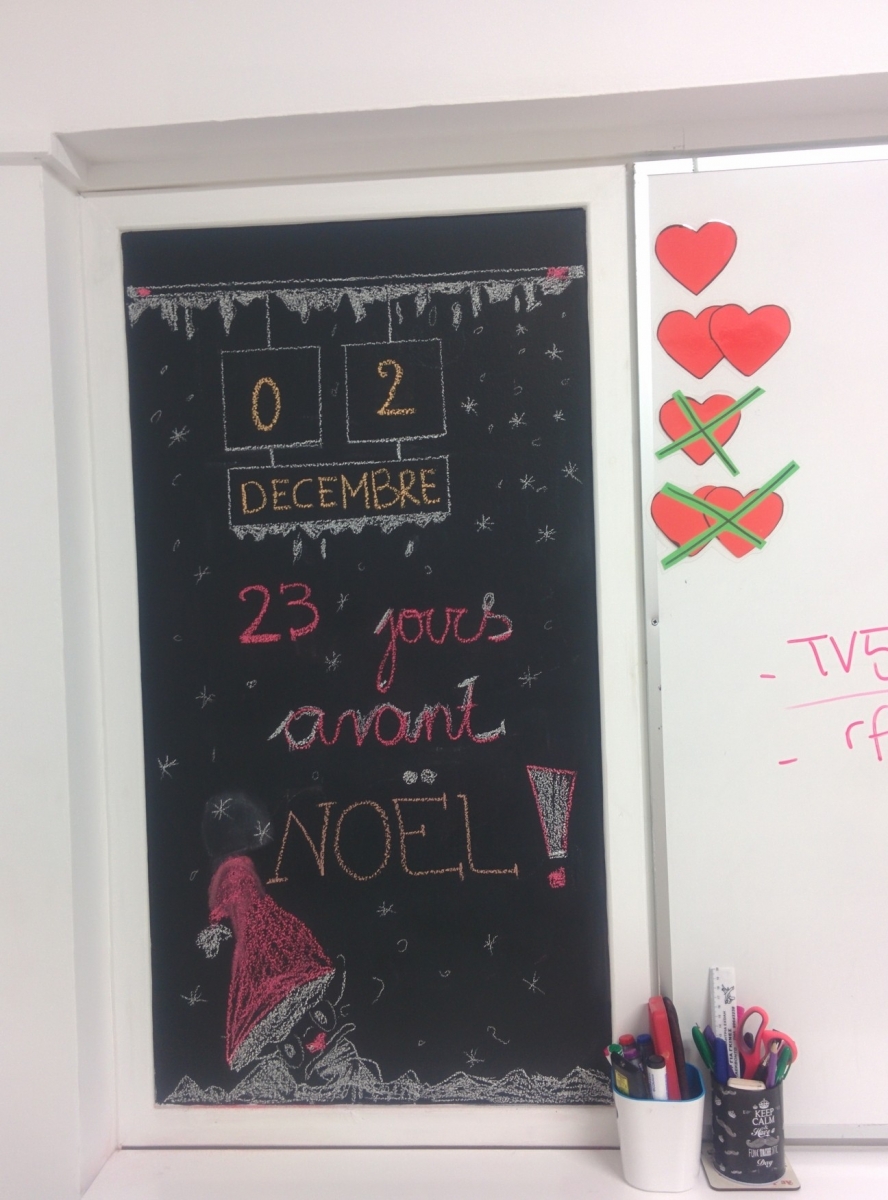 0 2
DECEMBRE
23 jours
avant
NOËL!
- TV5
- rf
KEEP
CALM
Have a
Day